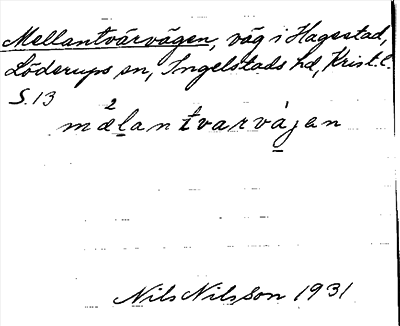 Mellantvärvägen, väg i Hagestad,
Löderups sn, Ingelstads hd, Krist. l.
S. 13
2
mälantvarvàjen
Nils Nilsson 1931